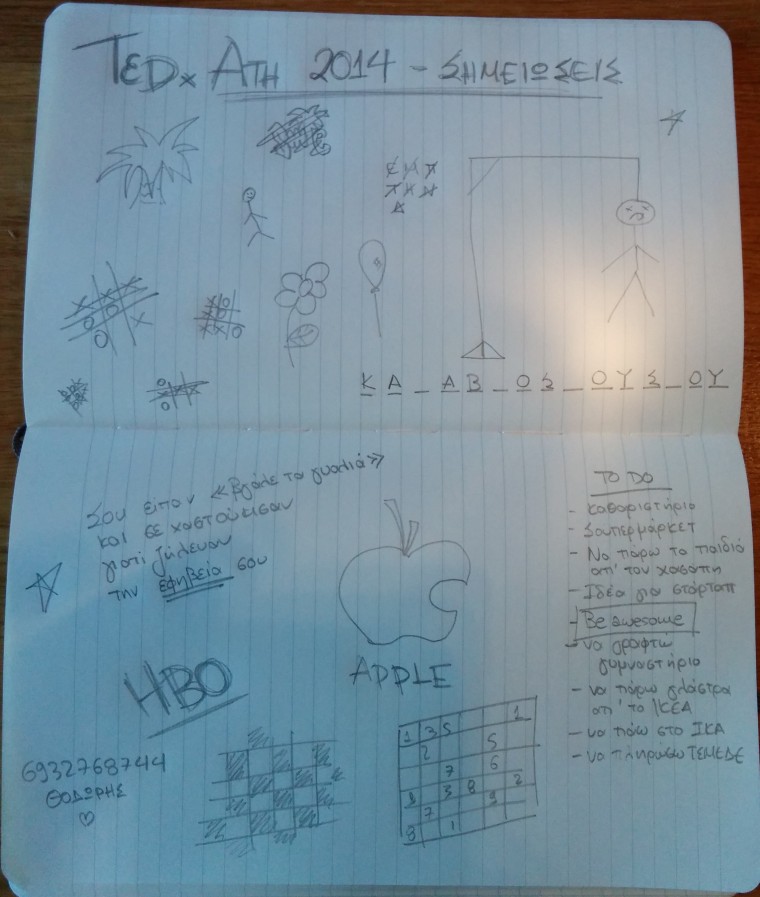 TEDx ΑΤΗ 2014 - ΣΗΜΕΙΩΣΕΙΣ
Κ Α _ Α Β _ Ο Σ _ Ο Υ Σ _ Ο Υ
Σου είπαν «βγάλε τα γυαλιά»
και σε χαστούκισαν
γιατί ζήλευαν
την εφηβεία σου
APPLE
HBO
6932768744
ΘΟΔΩΡΗΣ
TO DO
- καθαριστήριο
- Σουπερμάρκετ
- Να πάρω το παιδιά
απ' τον χασάπη
- Ιδέα για στάρταπ
- Be awesome
- να γραφτώ
γυμναστήριο
- να πάρω γλάστρα
απ' το ΙΚΕΑ
- να πάω στο ΙΚΑ
- να πληρώσω ΤΣΜΕΔΕ
1 3 5 1
2 5
7 6
9 3 8 2
7 9
8 1